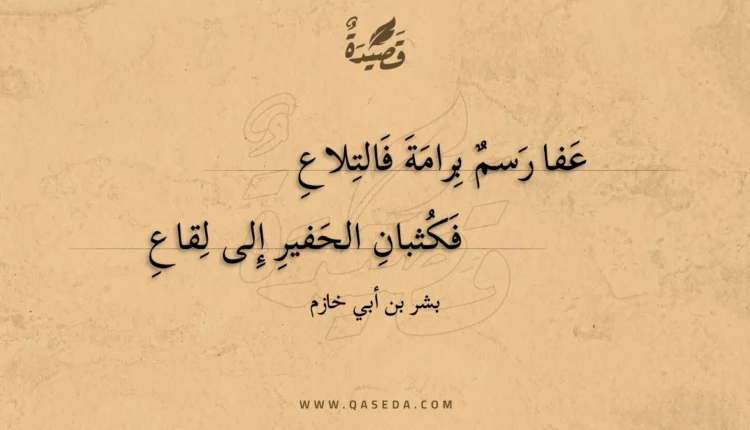 قَصِيدَةٌ
عَفا رَسمٌ بِرامَةَ فَالتِلاعِ
فَكُثبانِ الحَفيرِ إِلى لِقاعِ
بشر بن أبي خازم
WWW.QASEDA.COM